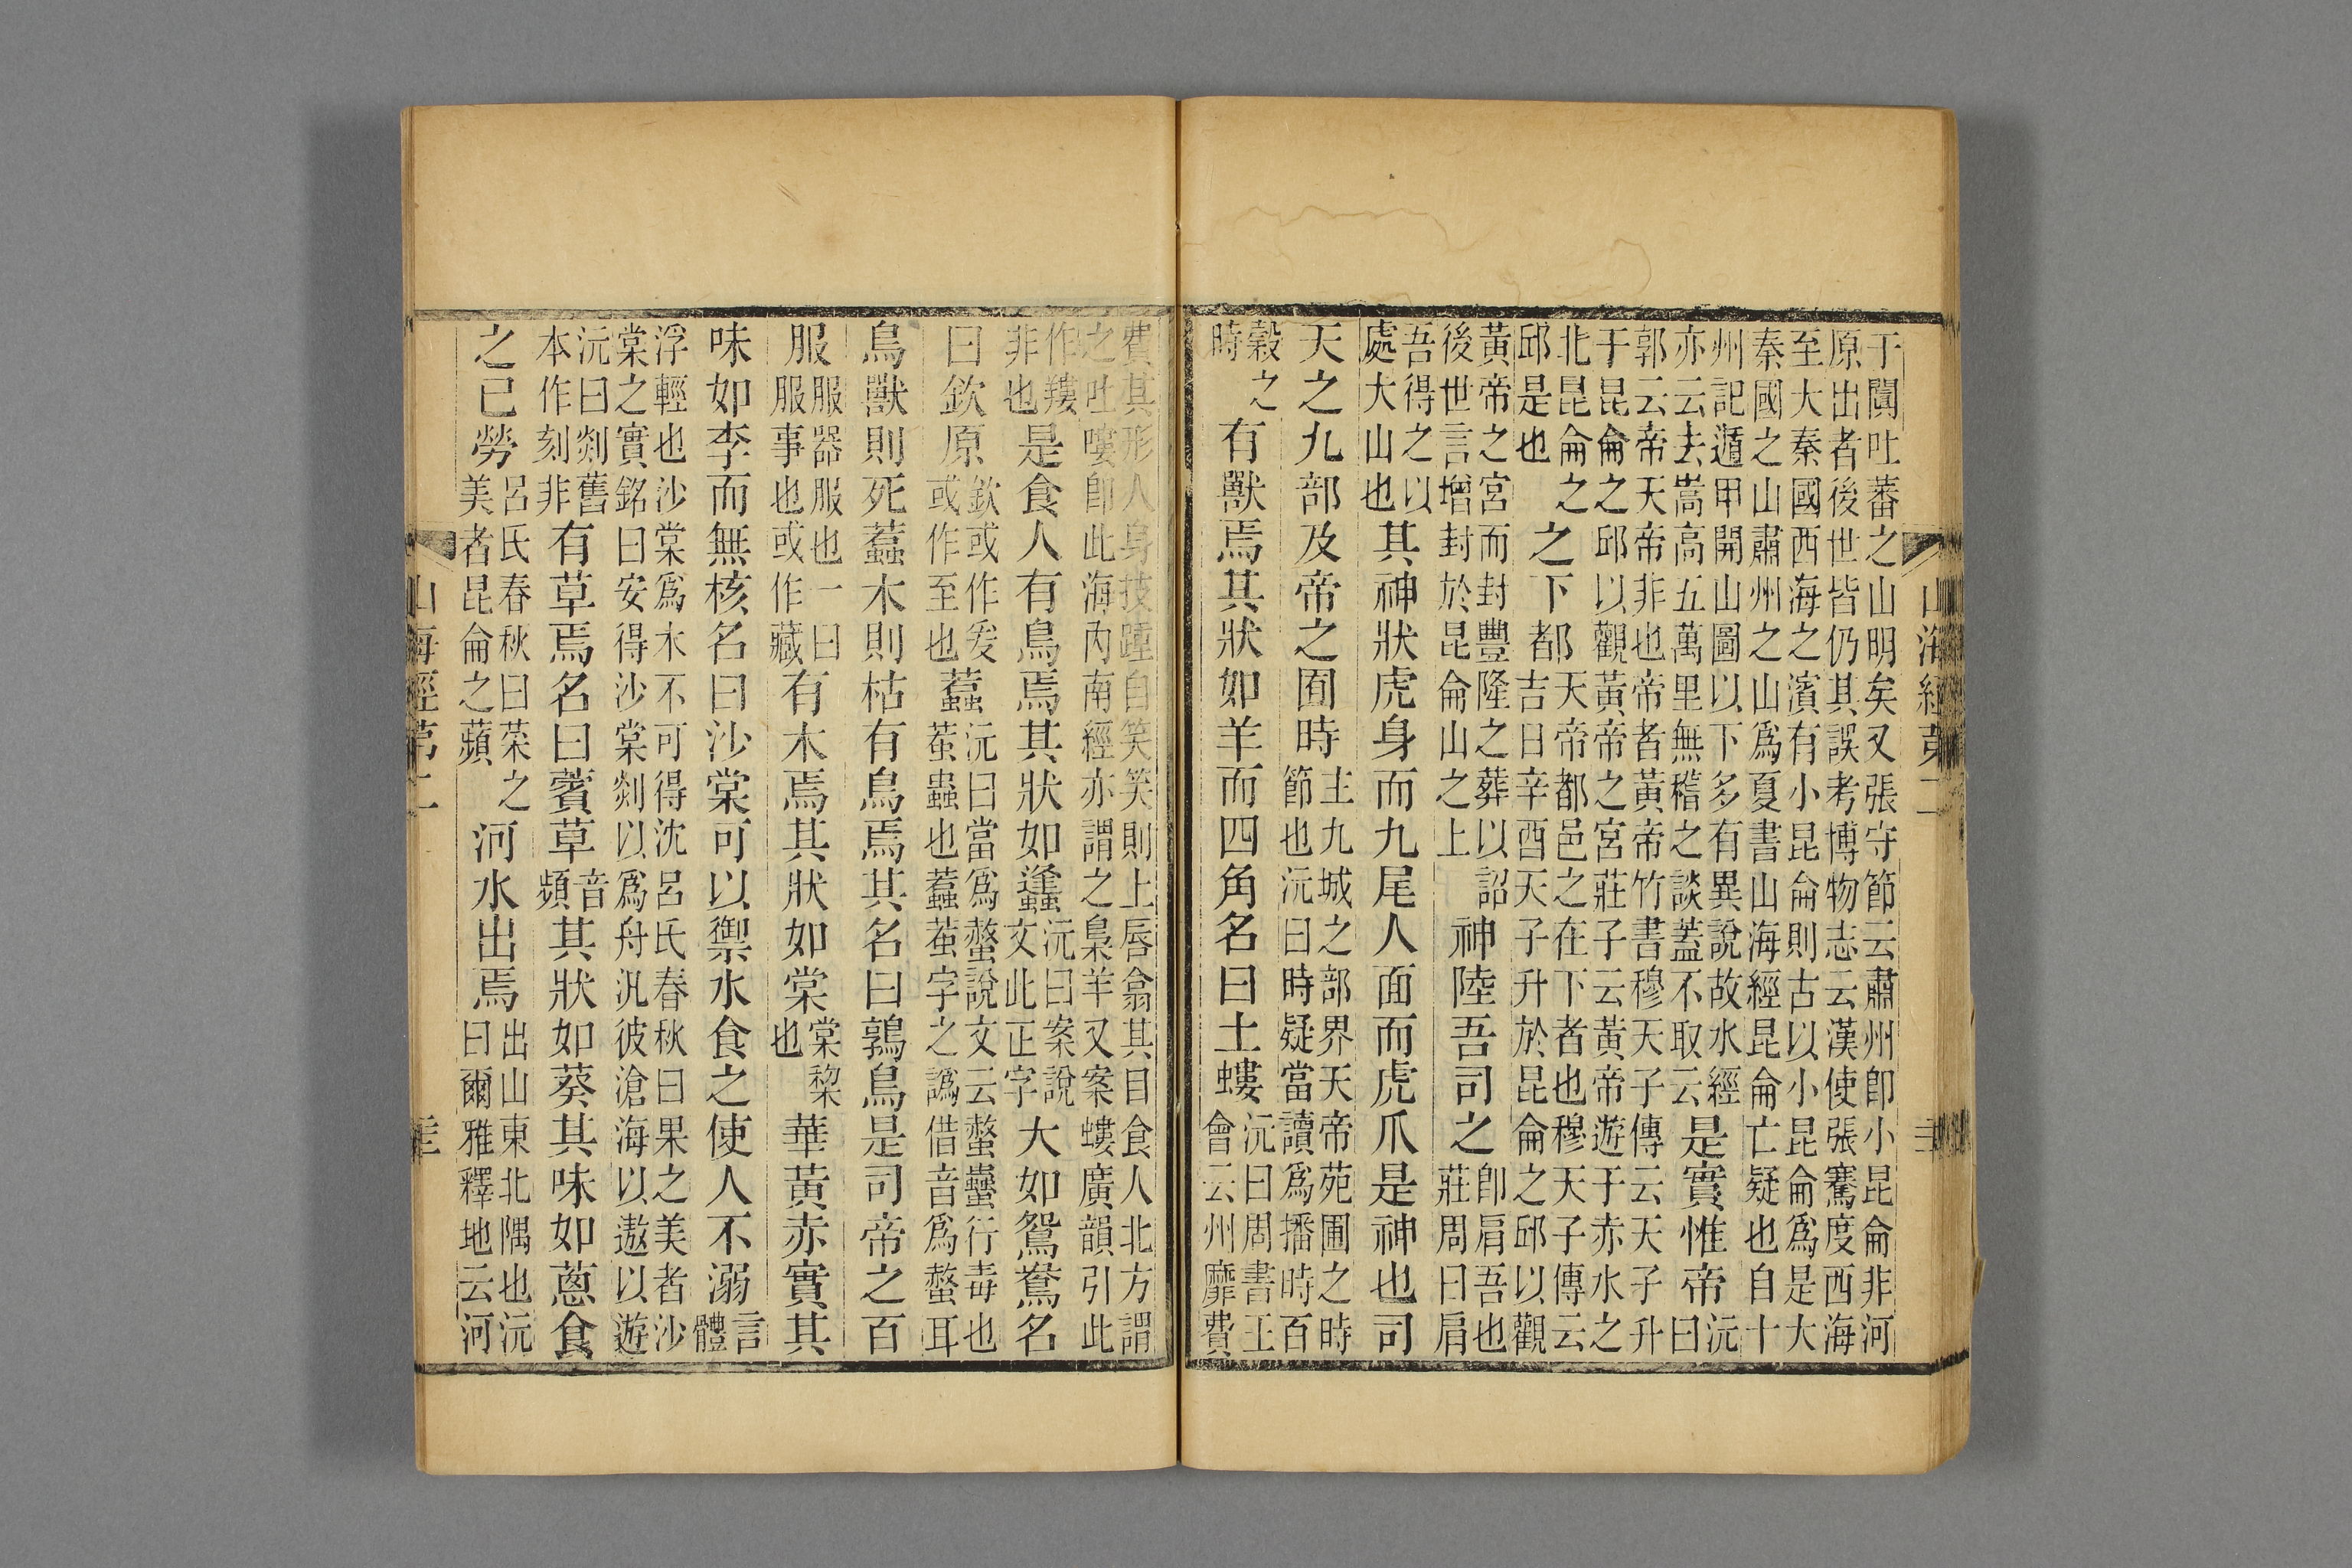 山海經第二
于闐吐蕃之山明矣又張守節云肅州卽小昆侖非河
原出者後世皆仍其誤考博物志云漢使張騫度西海
至大秦國西海之濱有小昆侖則古以小昆侖爲是大
秦國之山肅州之山爲夏書山海經昆侖亡疑也自十
州記遁甲開山圖以下多有異說故水經
亦云去嵩高五萬里無稽之談蓋不取云
是實惟帝沅曰
郭云帝天帝非也帝者黃帝竹書穆天子傳云天子升
于昆侖之邱以觀黃帝之宮莊子云黃帝遊于赤水之
北昆侖之邱是也
之下都
天帝都邑之在下者也穆天子傳云
吉日辛酉天子升於昆侖之邱以觀
黃帝之宮而封豐隆之葬以詔
後世言增封於昆侖山之上
神陸吾司之卽肩吾也莊周曰肩
吾得之以處大山也其神狀虎身而九尾人面而虎爪是神也司
天之九部及帝之囿時
主九城之部界天帝苑圃之時
節也沅曰時疑當讀爲播時百
穀之時有獸焉其狀如羊而四角名曰土螻沅曰周書王會云州靡費
費其形人身技踵自笑笑則上唇翕其目食人北方謂
之吐嘍卽此海內南經亦謂之梟羊又案螻廣韻引此
作䍯非也是食人有鳥焉其狀如蠭沅曰案說文此正字大如鴛鴦名
曰欽原欽或作爰或作至也蠚
沅曰當爲螫說文云螫蠆行毒也
䖧蟲也蠚䖧字之譌借音爲螫耳
鳥獸則死蠚木則枯有鳥焉其名曰鶉鳥是司帝之百
服服器服也一曰服事也或作藏有木焉其狀如棠棠棃也華黃赤實其
味如李而無核名曰沙棠可以禦水食之使人不溺言體
浮輕也沙棠爲木不可得沈呂氏春秋曰果之美者沙
棠之實銘曰安得沙棠剡以爲舟汎彼滄海以遨以遊
沅曰剡舊本作刻非有草焉名曰薲草音頻其狀如葵其味如蔥食
之已勞呂氏春秋曰菜之美者昆侖之蘋河水出焉出山東北隅也沅曰爾雅釋地云河
山海經第二